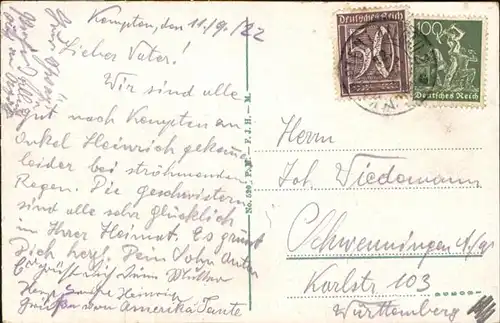 Kempten, den 11./9./22
Lieber Vater!
Wir sind alle
gut nach Kempten an
Onkel Heinrich gekomm
leider bei strömenden
Regen. Die Geschwistern
sind alle sehr glücklich
in Ihrer Heimat. Es grüsst
Dich herzl. Dein Sohn Anton
Es grüßt auch
Heinrich
Amerika Tante
No. 539 P. M. – F. J. H. – M.
Deutsches Reich
50
100
Deutsches Reich
Herrn
Joh. Wiedemann
Schwenningen a/N
Karlstr 103
Württemberg